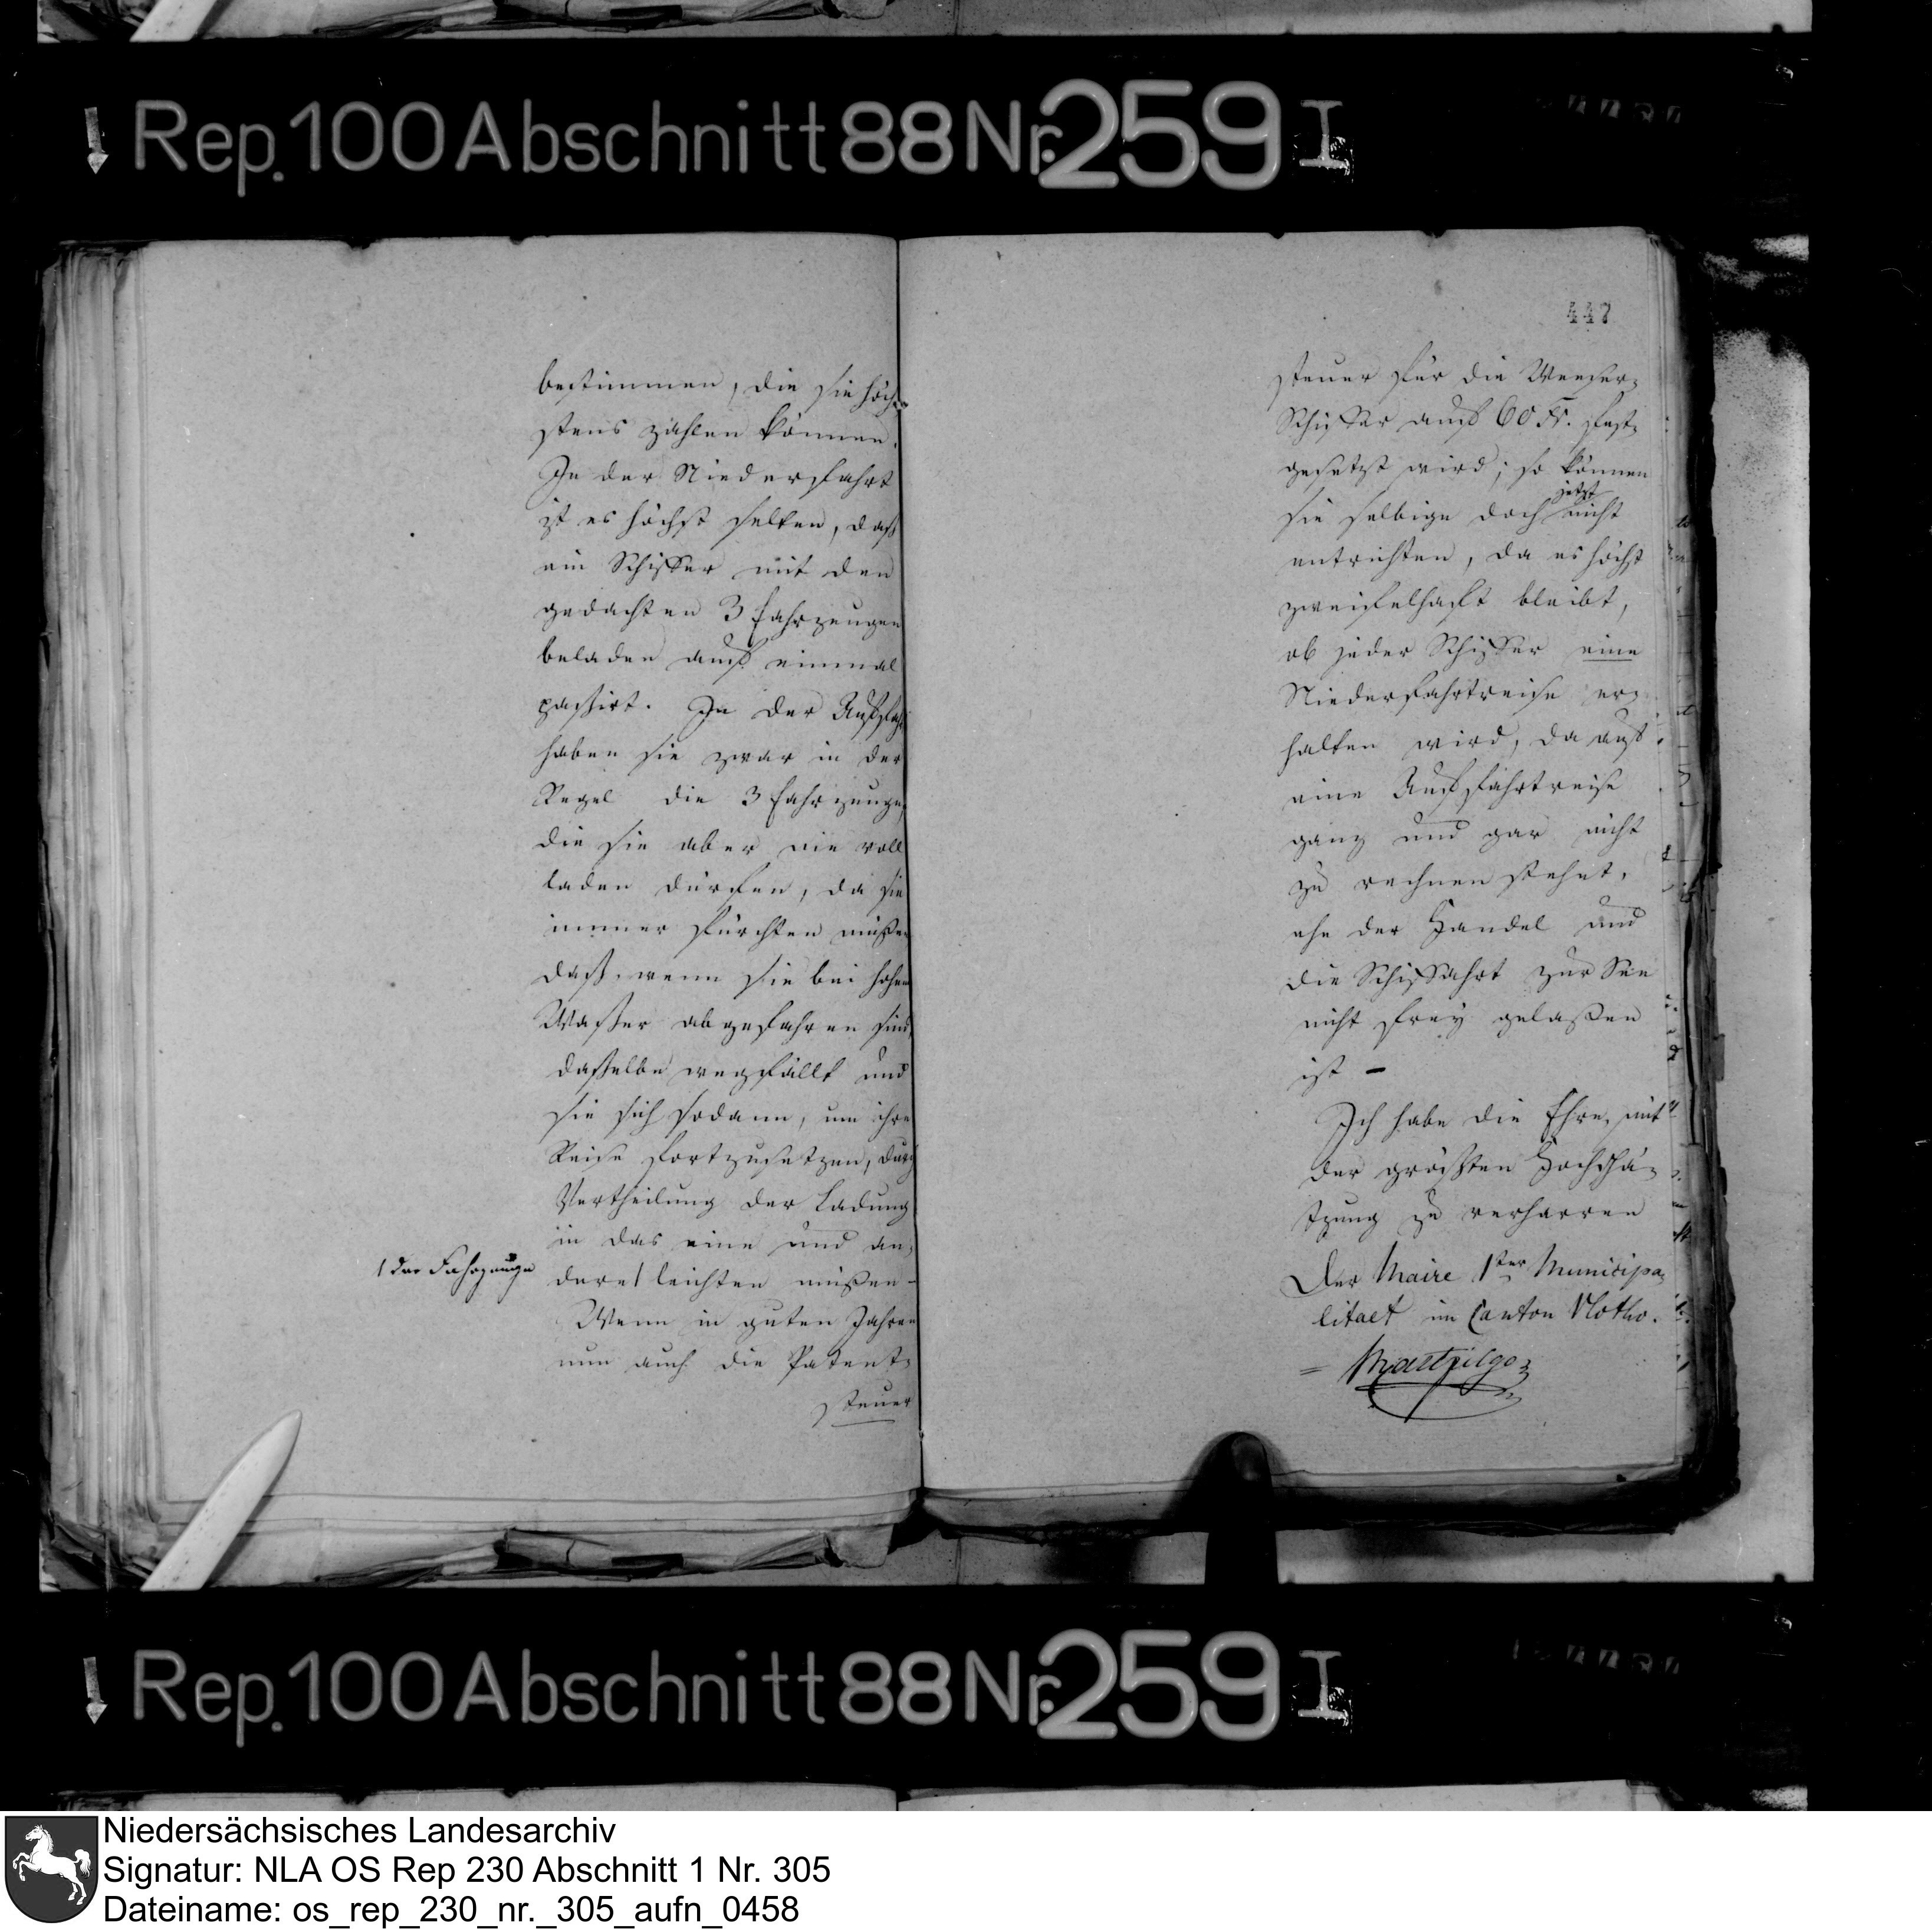 Rep. 100 Abschnitt 88 Nr. 259 I
bestimmen, die sie höch-
stens zahlen können.
In der Niederfahrt
ist es höchst selten, daß
ein Schiffer mit den
gedachten 3 Fahrzeugen
beladen auf einmal
passirt. In der Auffahrt
haben sie zwar in der
Regel die 3 Fahrzeuge,
die sie aber nie voll
laden dürfen, da sie
immer fürchten müßen
daß, wenn sie bei hohem
Waßer abgefahren sind,
daßelbe wegfällt und
sie sich sodann, um ihre
Reise fortzusetzen, durch
Vertheilung der Ladung
in das eine und an-
1 der Fahrzeuge
dere 1 leichten müßen -
Wenn in guten Jahren
nun auch die Patent-
steuer
447
steuer für die Weeser-
Schiffer auf 60 Fr. fest-
gesetzt wird; so können
jetzt
sie selbige doch nicht
entrichten, da es höchst
zweifelhaft bleibt,
ob jeder Schiffer eine
Niederfahrtreise er-
halten wird, da auf
eine Auffahrtreise
ganz und gar nicht
zu rechnen stehet,
ehe der Handel und
die Schiffahrt zur See
nicht frey gelaßen
ist -
Ich habe die Ehre, mit
der größten Hochschä-
tzung zu verharren
Der Maire 1ster Municipa-
litaet im Canton Vlotho.
Rep. 100 Abschnitt 88 Nr. 259 I
Niedersächsisches Landesarchiv
Signatur: NLA OS Rep 230 Abschnitt 1 Nr. 305
Dateiname: os_rep_230_nr._305_aufn_0458